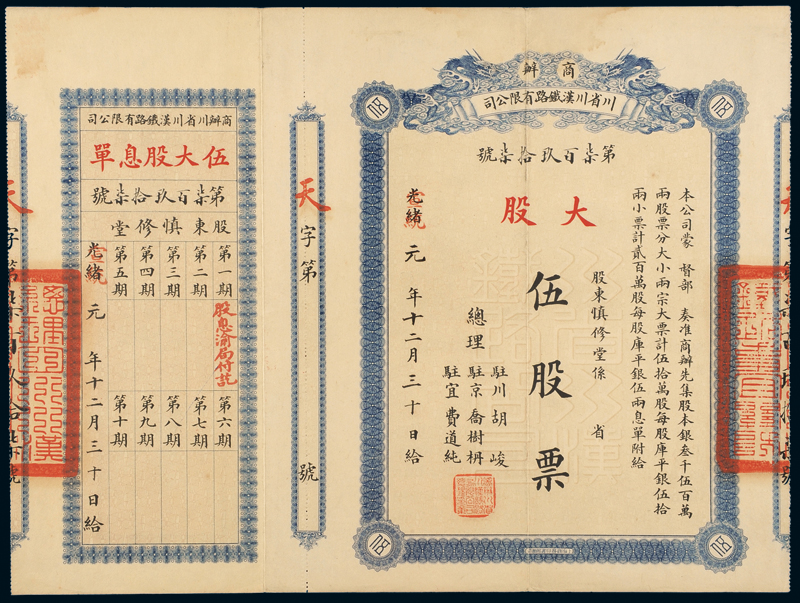 商辦
川省川漢鐵路有限公司
第柒百玖拾柒號
大股
本公司蒙 督部 奏准商辦先集股本銀叁千伍百萬
兩股票分大小兩宗大票計伍拾萬股每股庫平銀伍拾
兩小票計貳百萬股每股庫平銀伍兩息單附給
股東慎修堂係 省
伍股票
總理
駐川胡峻
駐京喬樹枬
駐宜費道純
光緒
宣統
元年十二月三十日給
天字第 號
商辦川省川漢鐵路有限公司
伍大股息單
第柒百玖拾柒號
股東慎修堂
第一期
第二期
第三期
第四期
第五期
股息渝局付訖
第六期
第七期
第八期
第九期
第十期
光緒
宣統
元年十二月三十日給
天字第